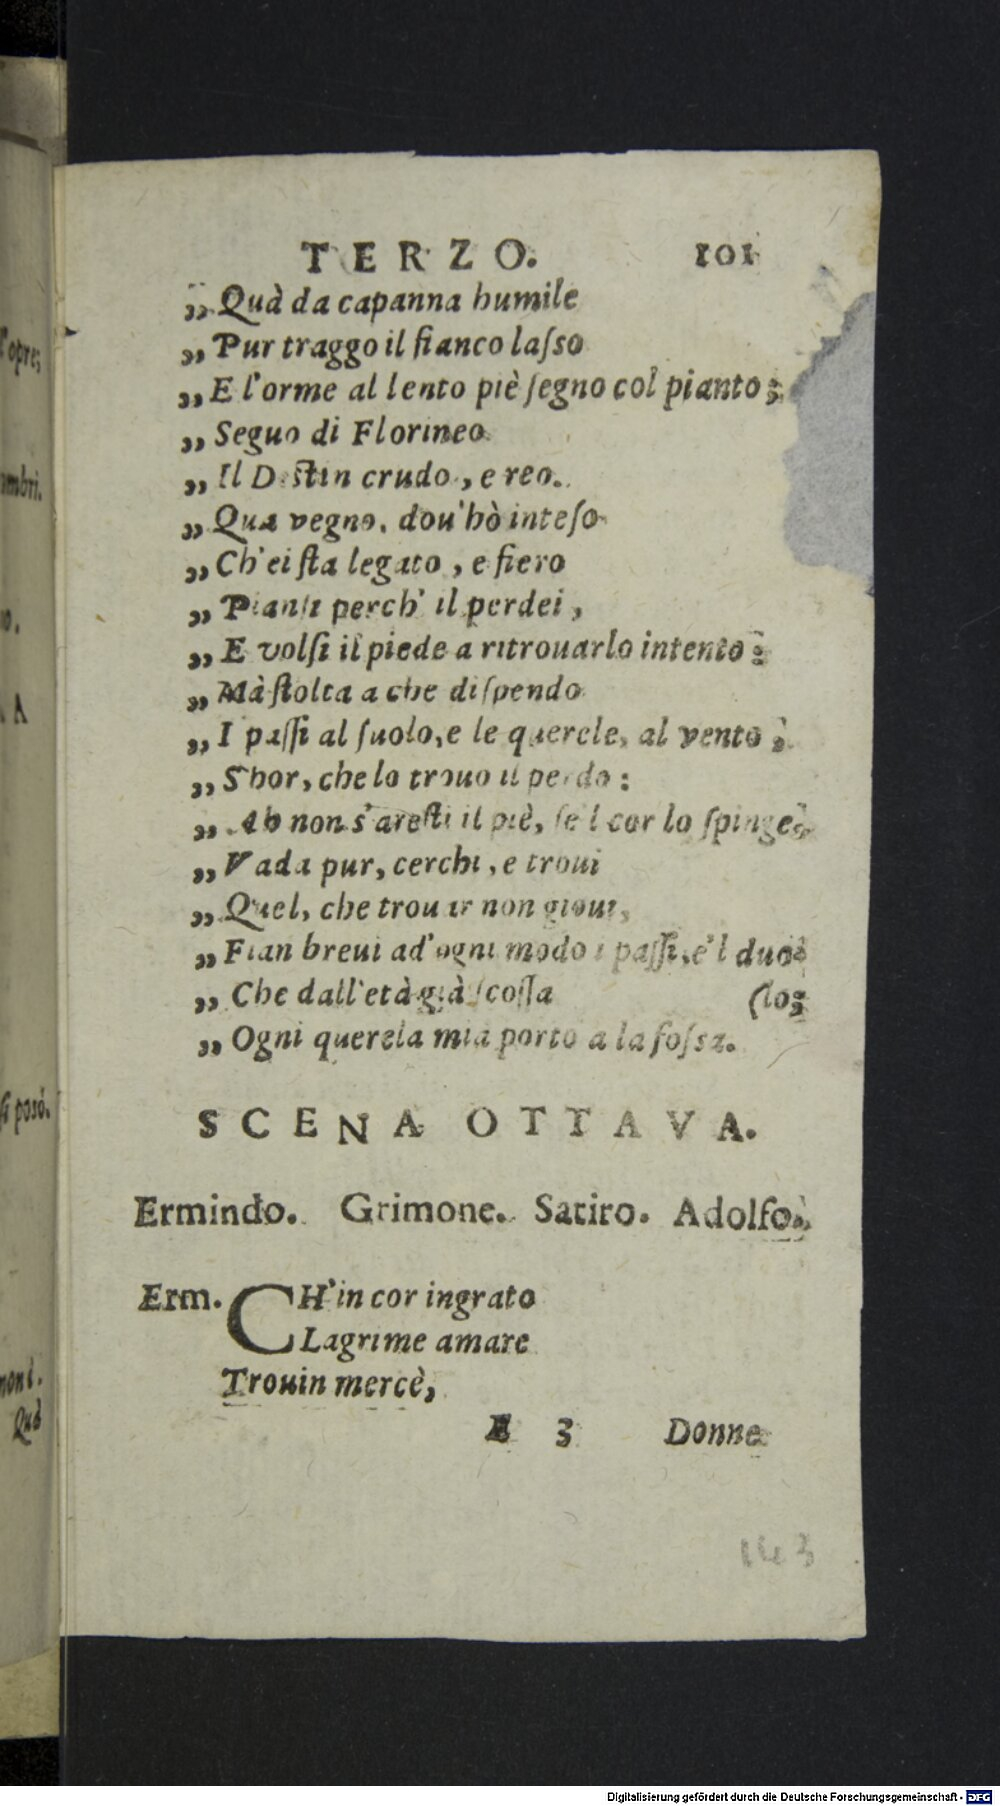 TERZO. 101
„ Quà da capanna humile
„ Pur traggo il fianco laſso
„ E l'orme al lento piè ſegno col pianto;
„ Seguo di Florineo
„ Il Deſtin crudo, e reo.
„ Qua vegno, dou'hò inteſo
„ Ch'ei ſta legato, e fiero
„ Pianſi perch' il perdei,
„ E volſi il piede a ritrouarlo intento:
„ Mà ſtolta a che diſpendo
„ I paſſi al ſuolo, e le querele, al vento;
„ S'hor, che lo trouo il perdo:
„ Ah non s'areſti il piè, ſe'l cor lo ſpinge,
„ Vada pur, cerchi, e troui
„ Quel, che trouar non gioui,
„ Fian breui ad'ogni modo i paſſi, e'l duo-
„ Che dall'età già ſcoſſa (lo;
„ Ogni querela mia porto a la foſsa.
SCENA OTTAVA.
Ermindo. Grimone. Satiro. Adolfo.
Erm. CH'in cor ingrato
Lagrime amare
Trouin mercè,
E 3 Donne
143
l'opre;
ombri.
o.
A
ſi posò.
noni.
Quà
Digitalisierung gefördert durch die Deutsche Forschungsgemeinschaft - DFG